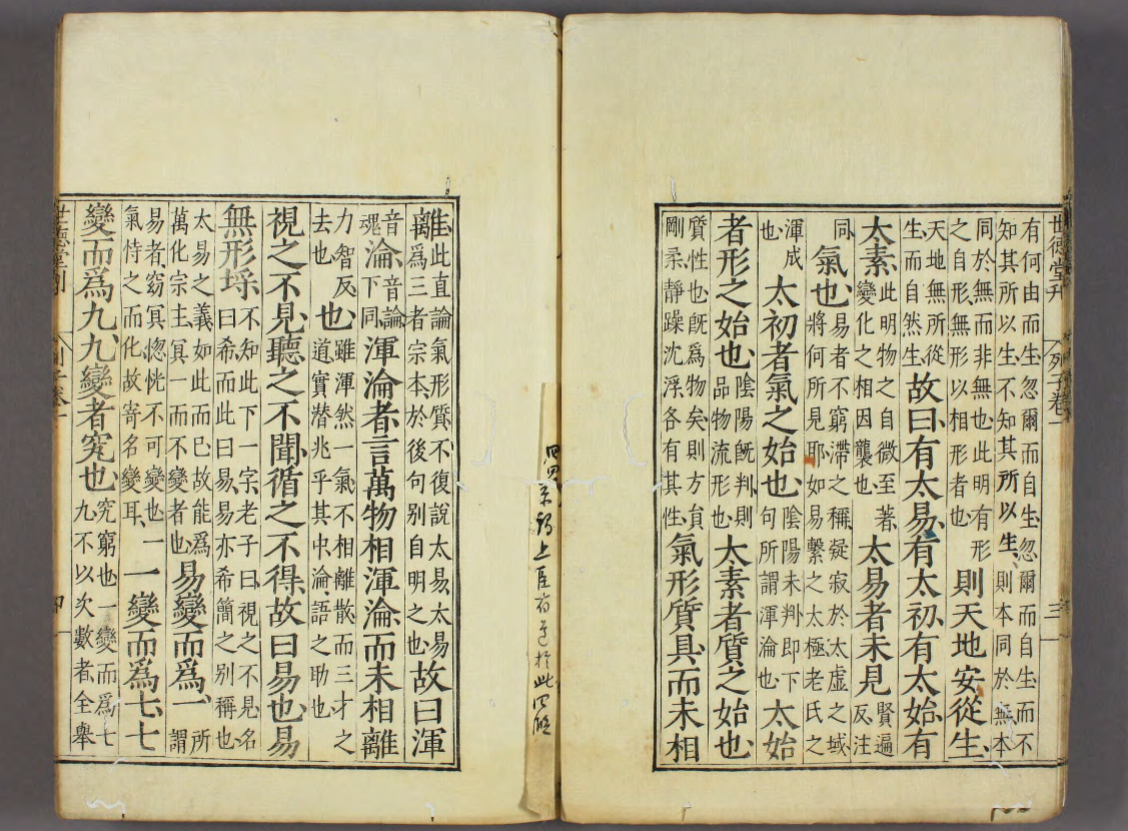 世德堂刊 列子卷一 三
有何由而生忽爾而自生忽爾而自生而不
知其所以生不知其所以生則本同於無本
同於無而非無也此明有形
之自形無形以相形者也
則天地安從生
天地無所從
生而自然生
故曰有太易有太初有太始有
太素
此明物之自微至著
變化之相因襲也
太易者未見
賢遍
反注
同
氣也
易者不窮滯之稱凝寂於太虛之域
將何所見耶如易繫之太極老氏之
渾成
也
太初者氣之始也
陰陽未判即下
句所謂渾淪也
太始
者形之始也
陰陽旣判則
品物流形也
太素者質之始也
質性也旣爲物矣則方員
剛柔靜躁沈浮各有其性
氣形質具而未相
離
此直論氣形質不復說太易太易
爲三者宗本於後句別自明之也
故曰渾
音
魂
淪
音論
下同
渾淪者言萬物相渾淪而未相離
力智反
去也
也
雖渾然一氣不相離散而三才之
道實潛兆乎其中淪語之助也
視之不見聽之不聞循之不得故曰易也易
無形埓
不知此下一字老子曰視之不見名
曰希而此曰易易亦希簡之別稱也
太易之義如此而已故能爲
萬化宗主冥一而不變者也
易變而爲一
所
謂
易者窈冥惚恍不可變也一
氣恃之而化故寄名變耳
一變而爲七七
變而爲九九變者究也
究窮也一變而爲七
九不以次數者全舉